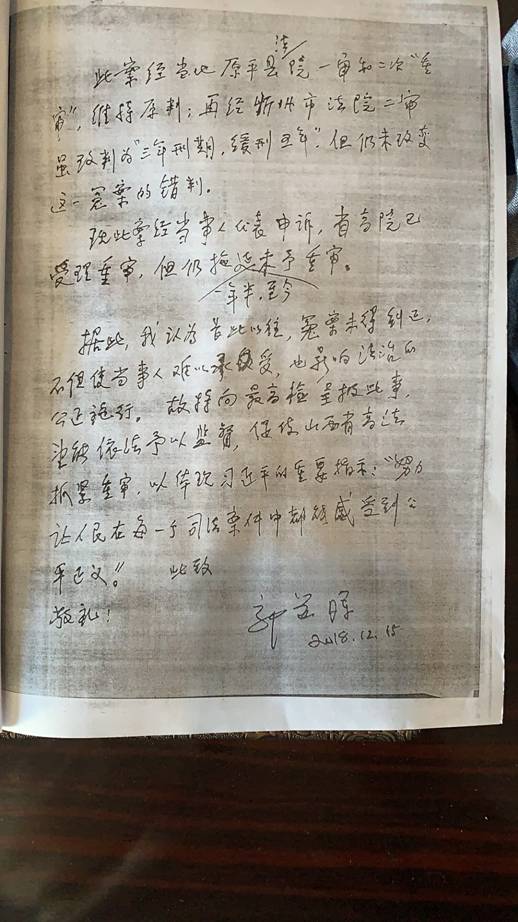 此案经当地原平县法院一审和二次“重
审”，维持原判；再经忻州市法院二审
虽改判为“三年刑期，缓刑五年”。但仍未改变
这一冤案的错判。
现此案经当事人代表申诉，省高院已
受理重审，但仍拖延未予重审。
一年半，至今
据此，我认为长此以往，冤案未得纠正，
不但使当事人难以承受，也影响法治的
公正施行。故特向最高检呈报此事，
望能依法予以监督，促使山西省高法
抓紧重审，以体现习近平的重要指示：“努力
让人民在每一个司法案件中都能感受到公
平正义”。 此致
敬礼！
郭道晖
2018.12.15